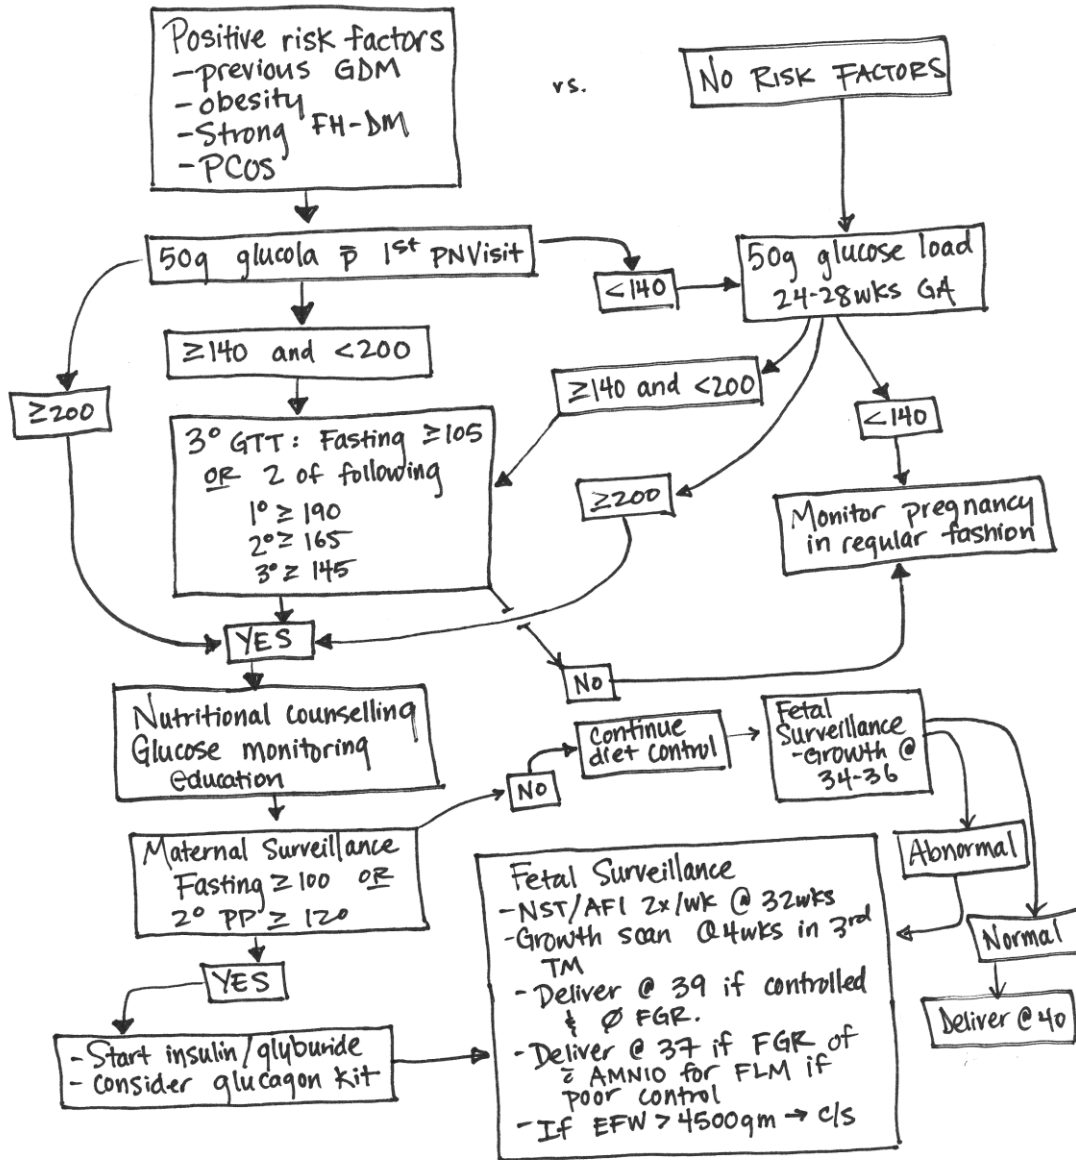 Positive risk factors
-previous GDM
-obesity
-Strong FH-DM
-PCOS
vs.
NO RISK FACTORS
50g glucola p̄ 1st PNVisit
<140
50g glucose load
24-28wks GA
≥140 and <200
≥200
≥140 and <200
<140
3° GTT: Fasting ≥105
OR 2 of following
1° ≥ 190
2° ≥ 165
3° ≥ 145
≥200
Monitor pregnancy
in regular fashion
YES
No
Nutritional counselling
Glucose monitoring
education
NO
continue
diet control
Fetal
Surveillance
-Growth @
34-36
Maternal Surveillance
Fasting ≥100 OR
2° PP ≥ 120
Abnormal
Normal
Deliver @ 40
YES
-Start insulin/glyburide
-consider glucagon kit
Fetal Surveillance
-NST/AFI 2x/wk @ 32wks
-Growth scan Q4wks in 3rd
TM
-Deliver @ 39 if controlled
& Ø FGR.
-Deliver @ 37 if FGR of
c̄ AMNIO for FLM if
poor control
-If EFW > 4500gm → c/s